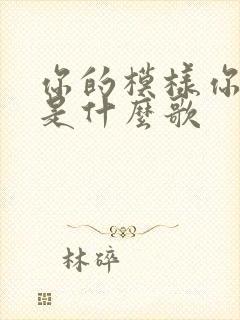 你的模样你
是什麽歌
林碎